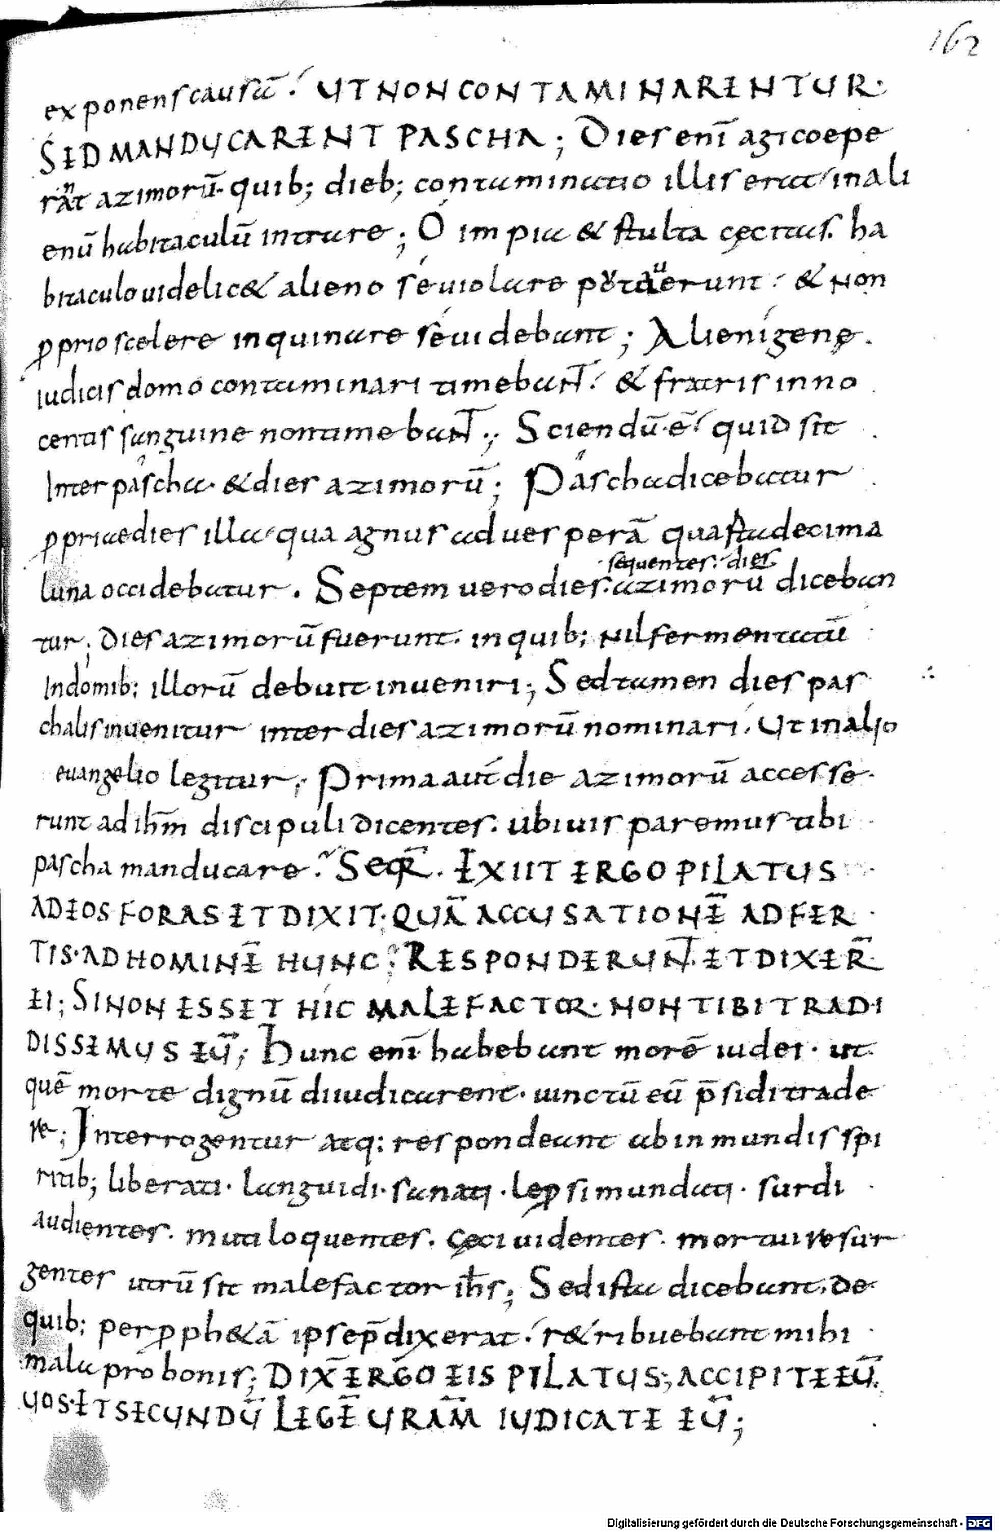 162
exponens causā. UT NON CONTAMINARENTUR.
SED MANDUCARENT PASCHA; Dies enī agi coepe
rant azimorū. quib; dieb; contaminatio illis erat in ali
enū habitaculū intrare; O impia & stulta cęcitas. ha
bitaculo uidelic& alieno se uiolare putauerunt. & non
ꝓprio scelere inquinare se uidebant; Alienigenę
iudicis domo contaminari timebant. & fratris inno
centis sanguine non timebant; Sciendū ē. quid sit
Inter pascha. & dies azimorū; Pascha dicebatur
ꝓpriae dies illa. qua agnus ad uesperā quarta decima
luna occidebatur. Septem uero dies. azimorū diceban
sequentes. dies
tur; dies azimorū fuerunt. in quib; nil fermentatū
In domib; illorū debuit inueniri; Sed tamen dies pas
chalis inuenitur inter dies azimorū nominari. Ut in alio
euangelio legitur; Prima aut die azimorū accesse
runt ad ihm discipuli dicentes. ubi uis paremus tibi
pascha manducare. Seqr̄. EXIIT ERGO PILATUS
AD EOS FORAS ET DIXIT. QUĀ ACCUSATIONĒ ADFER
TIS. AD HOMINĒ HUNC? RESPONDERUNT. ET DIXER̄
EI; SI NON ESSET HIC MALEFACTOR. NON TIBI TRADI
DISSEMUS EŪ; Hunc enī habebant morē iudei. ut
quē morte dignū diiudicarent. uinctū eū p̄sidi trade
re; Interrogentur atq; respondeant ab inmundis spi
ritib; liberati. languidi. sanati. lepsi mundati. surdi
audientes. muti loquentes. cęci uidentes. mortui resur
gentes utrū sit malefactor ihs; Sed ista dicebant. de
quib; per ꝓph&ā ipse p̄dixerat. r&ribuebant mihi
mala pro bonis; DIX̄ ERGO EIS PILATUS; ACCIPITE EŪ
UOS. ET SECUNDŪ LEGĒ URAM̄ IUDICATE EŪ;
Digitalisierung gefördert durch die Deutsche Forschungsgemeinschaft - DFG